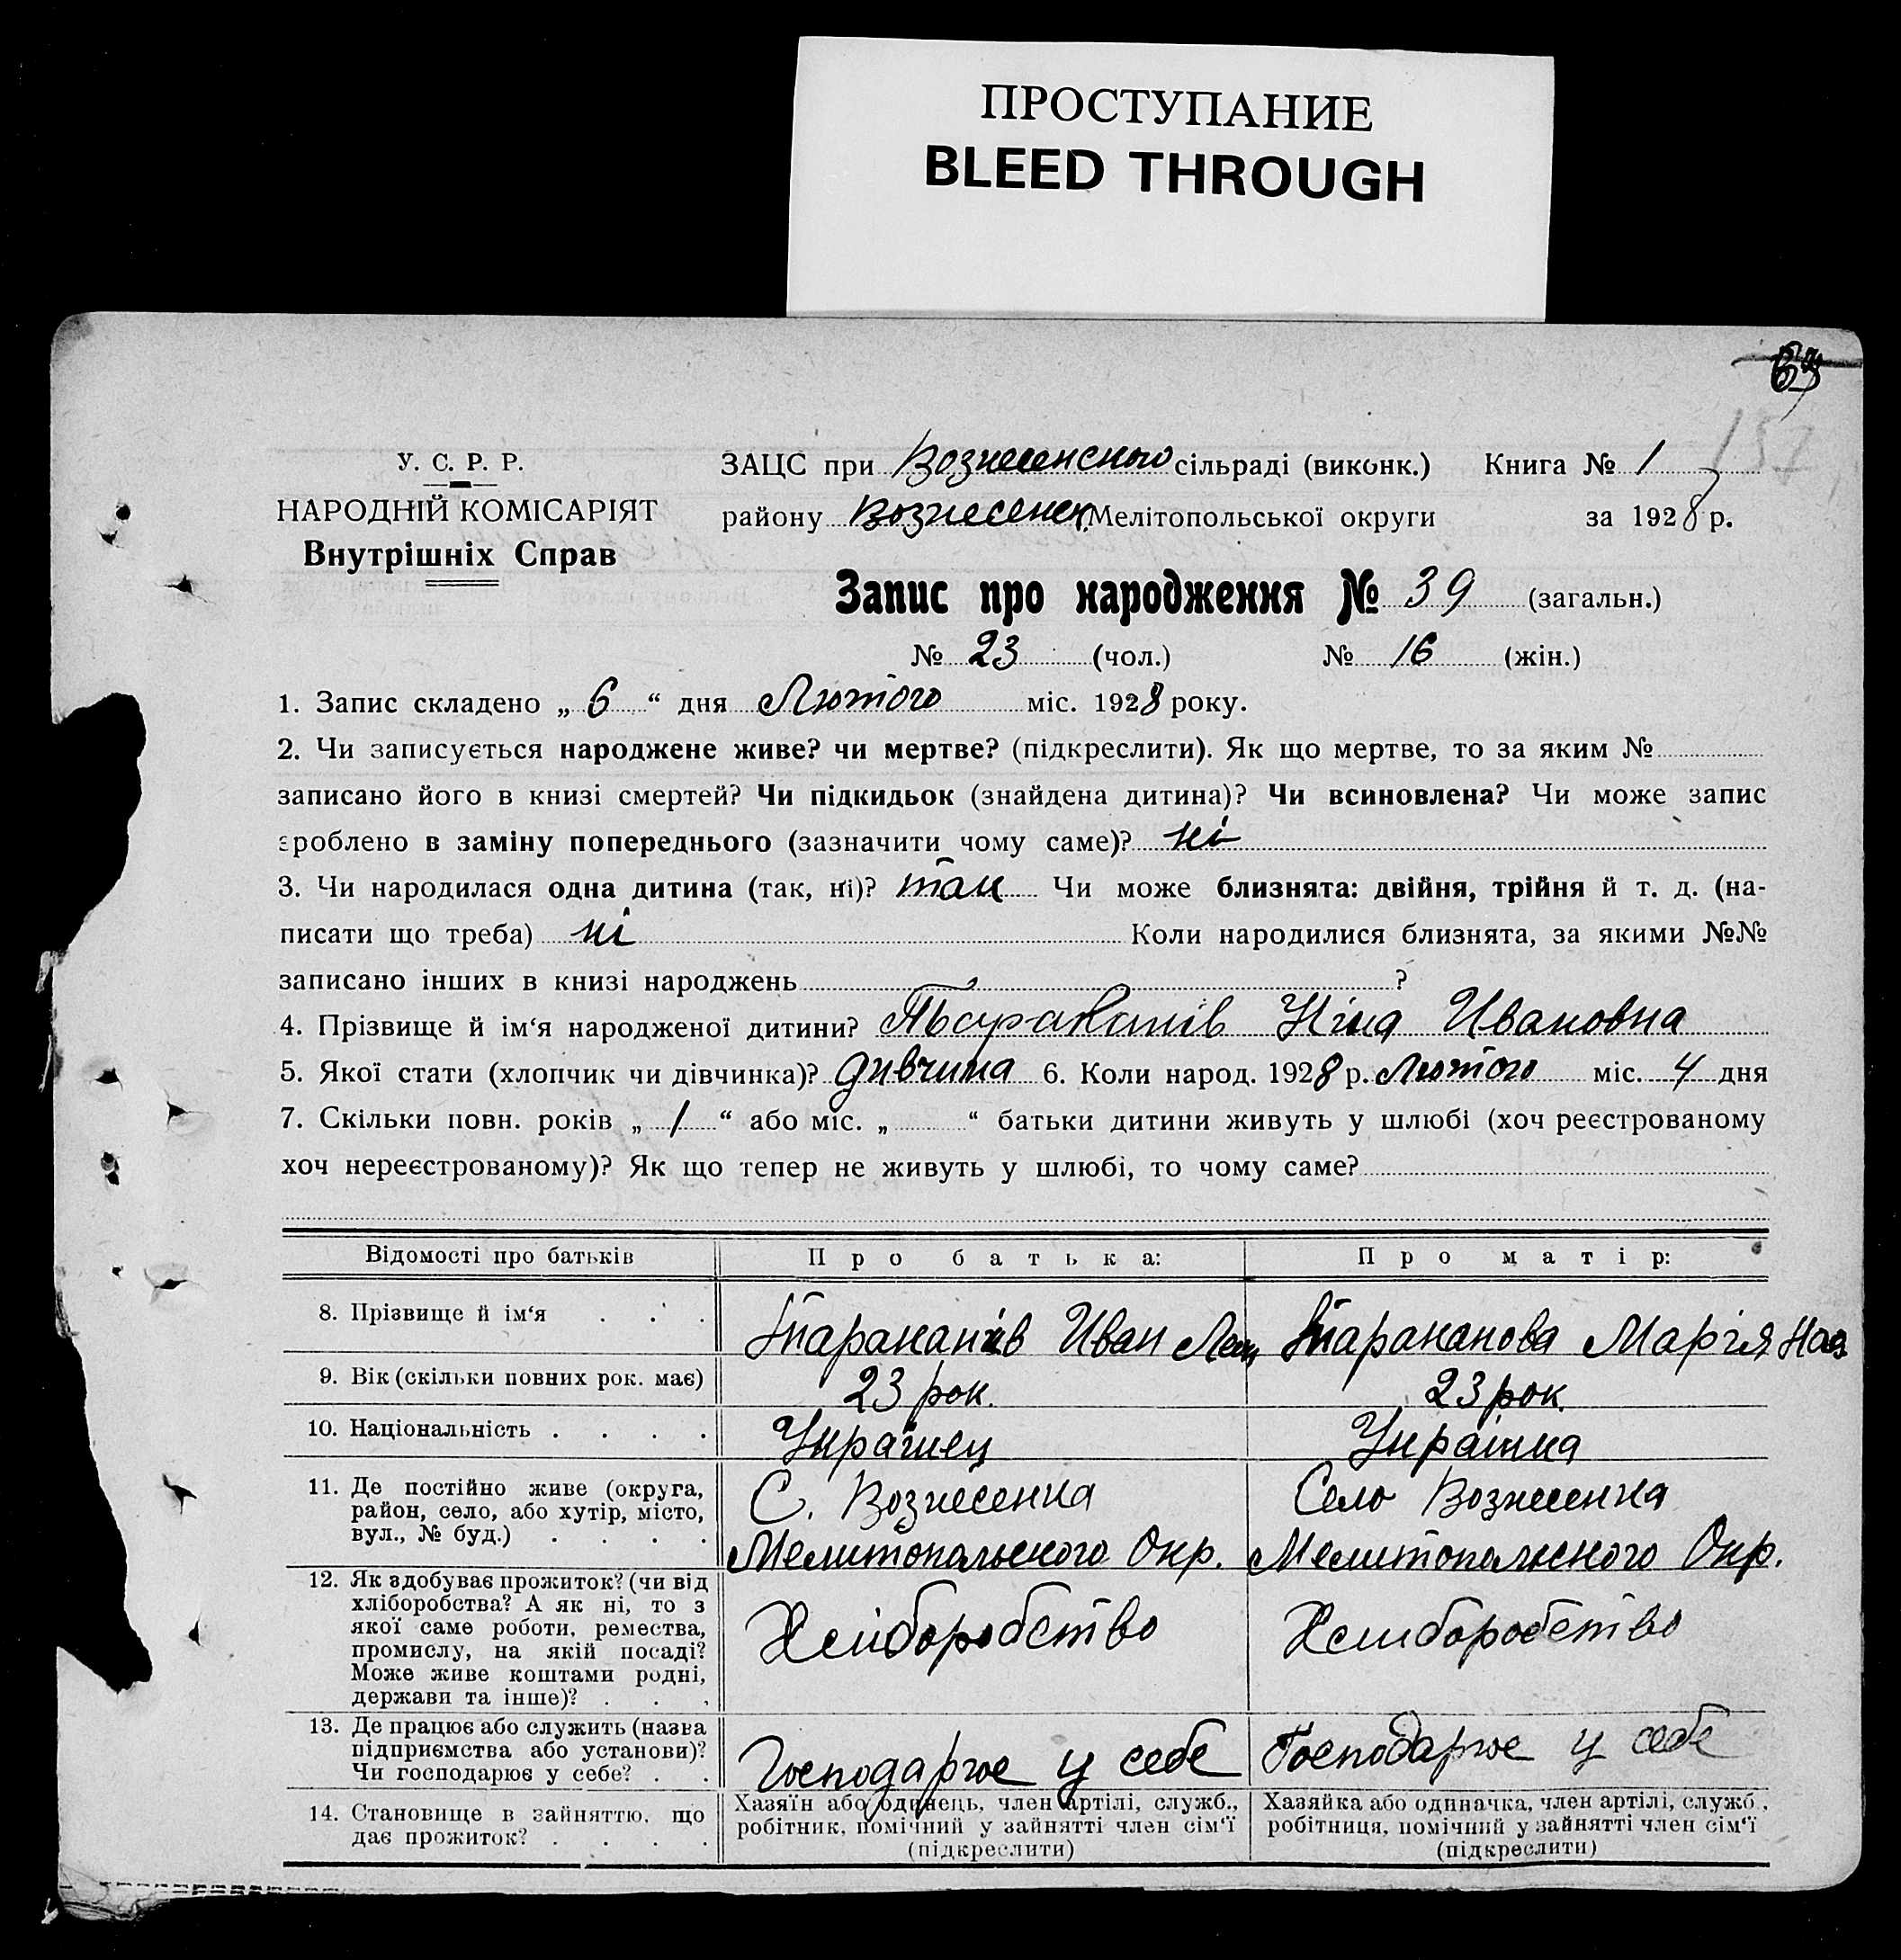 ПРОСТУПАНИЕ
BLEED THROUGH
У. С. Р. Р.
НАРОДНІЙ КОМІСАРІЯТ
Внутрішніх Справ
ЗАЦС при Вознесенского сільраді (виконк.) Книга № 1
157
району Вознесенск. Мелітопольської округи за 1928 р.
Запис про народження № 39 (загальн.)
№ 23 (чол.) № 16 (жін.)
1. Запис складено „ 6 “ дня Лютого міс. 1928 року.
2. Чи записується народжене живе? чи мертве? (підкреслити). Як що мертве, то за яким №
записано його в книзі смертей? Чи підкидьок (знайдена дитина)? Чи всиновлена? Чи може запис
зроблено в заміну попереднього (зазначити чому саме)? ні
3. Чи народилася одна дитина (так, ні)? так Чи може близнята: двійня, трійня й т. д. (на-
писати що треба) ні Коли народилися близнята, за якими №№
записано інших в книзі народжень ?
4. Прізвище й ім‘я народженої дитини? Тараканів Ніна Ивановна
5. Якої стати (хлопчик чи дівчинка)? дивчина 6. Коли народ. 1928 р. Лютого міс. 4 дня
7. Скільки повн. років „ 1 “ або міс. „ “ батьки дитини живуть у шлюбі (хоч реєстрованому
хоч нереєстрованому)? Як що тепер не живуть у шлюбі, то чому саме?
Відомості про батьків Про батька: Про матір:
8. Прізвище й ім‘я Тараканів Иван Тараканова Марія Наз
9. Вік (скільки повних рок. має) 23 рок. 23 рок.
10. Національність Украінец Украінка
11. Де постійно живе (округа, район, село, або хутір, місто, вул., № буд.)
С. Вознесенка
Мелитопольского Окр.
Село Вознесенка
Мелитопольского Окр.
12. Як здобуває прожиток? (чи від хліборобства? А як ні, то з якої саме роботи, ремества, промислу, на якій посаді? Може живе коштами родні, держави та інше)?
Хліборобство
Хлиборобство
13. Де працює або служить (назва підприємства або установи)? Чи господарює у себе?
Господарює у себе
Господарює у себе
14. Становище в зайняттю, що дає прожиток?
Хазяїн або одинець, член артілі, служб., робітник, помічний у зайнятті член сім‘ї (підкреслити)
Хазяйка або одиначка, член артілі, служб., робітниця, помічний у зайнятті член сім‘ї (підкреслити)